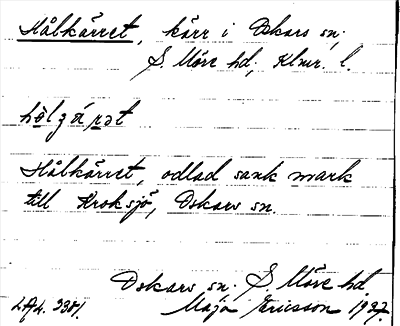 Hålkärret, kärr i Oskars sn,
S. Möre hd, Klmr. l.
Hålkärret, odlad sank mark
till Kroksjö, Oskars sn.
Oskars sn. S. Möre hd.
Maja Ericsson 1927.